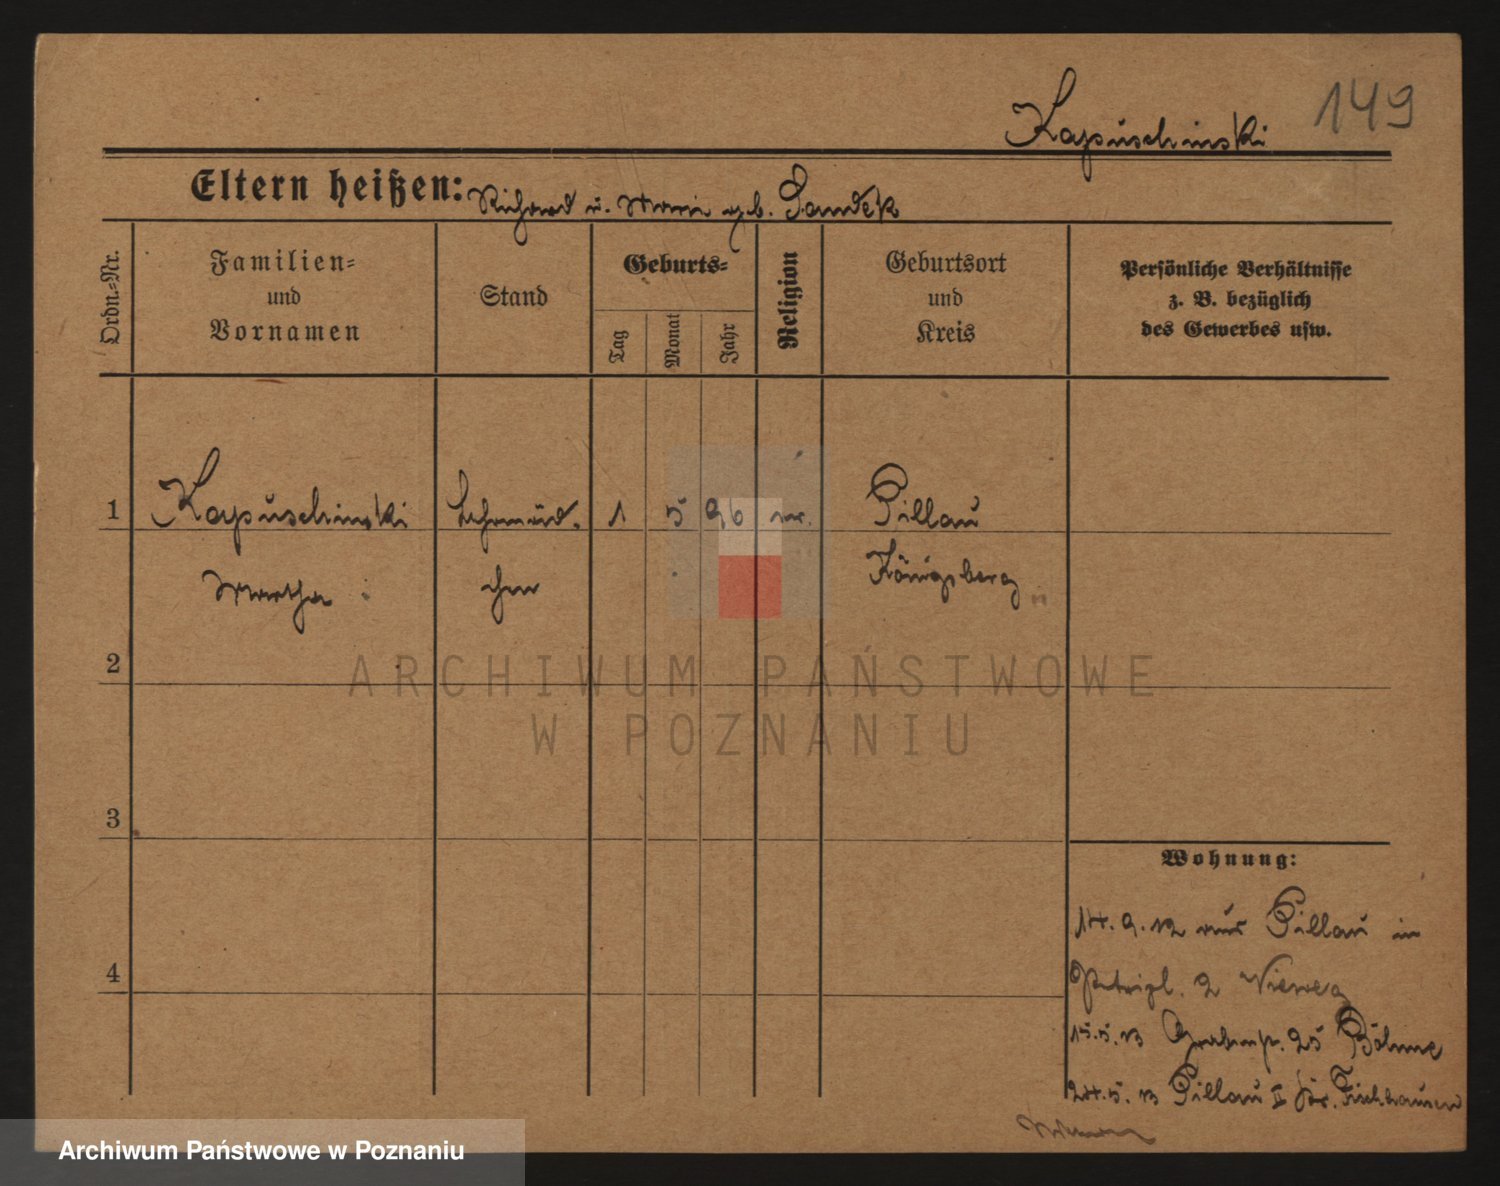 149
Kapuschinski
Eltern heißen: Richard u. Marie geb. Sandek
Ordn.-Nr.
Familien-
und
Vornamen
Stand
Geburts-
Tag
Monat
Jahr
Religion
Geburtsort
und
Kreis
Persönliche Verhältnisse
z. B. bezüglich
des Gewerbes usw.
1 Kapuschinski Lehrmäd. 1 5 96 ev. Pillau
Martha chen Königsberg
2
ARCHIWUM PAŃSTWOWE
W POZNANIU
3
Wohnung:
14.9.12 aus Pillau in
Petripl. 2 Vieweg
4
15.5.13 Grabenstr. 25 Böhme
24.5.13 Pillau II Kr. Fischhausen
Archiwum Państwowe w Poznaniu